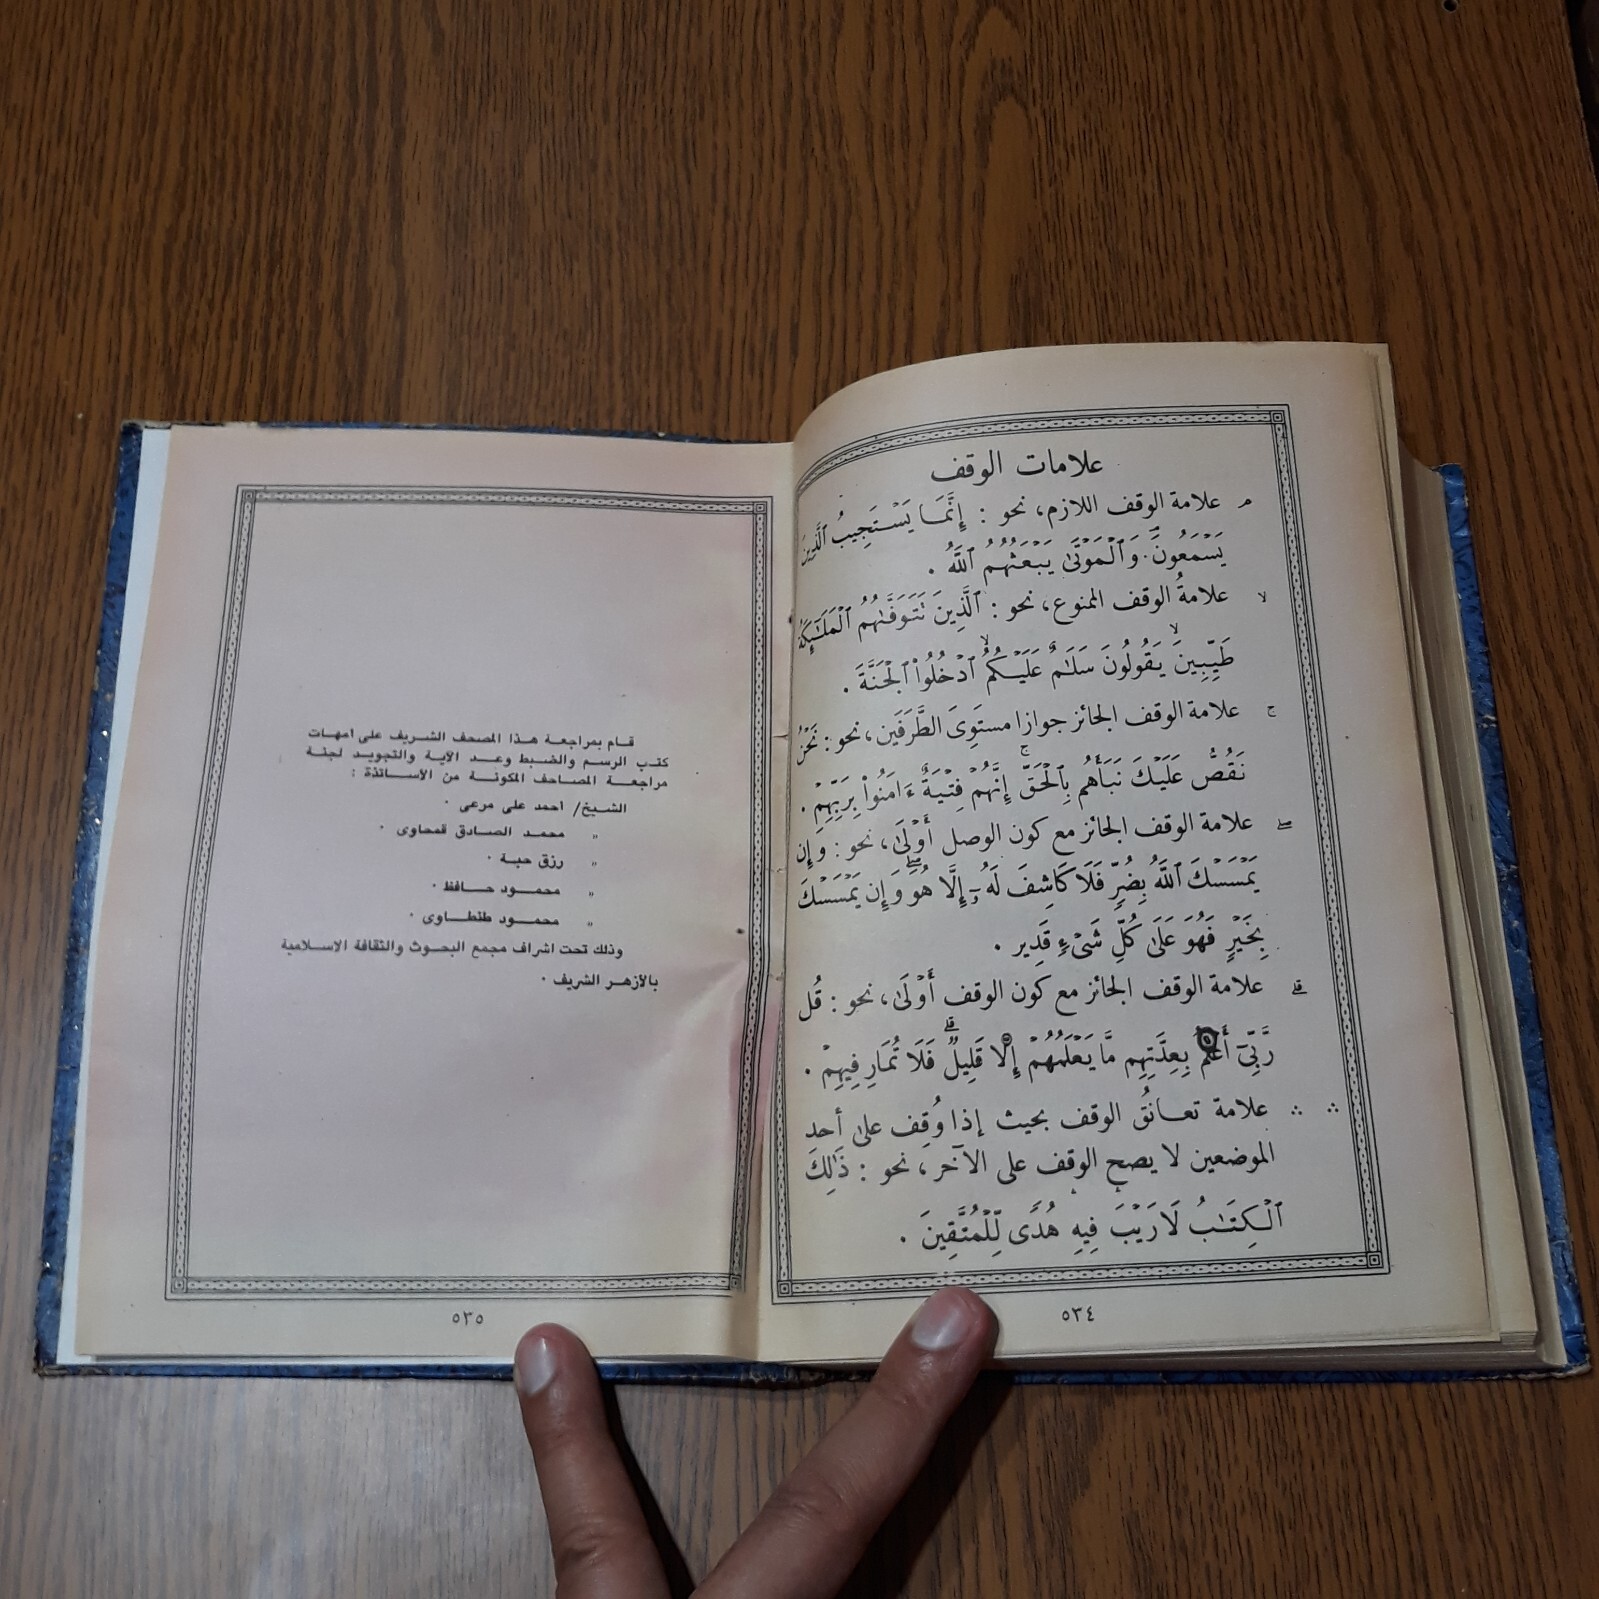 علامات الوقف
م علامة الوقف اللازم، نحو : إِنَّمَا يَسْتَجِيبُ ٱلَّذِينَ
يَسْمَعُونَۘ وَٱلْمَوْتَىٰ يَبْعَثُهُمُ ٱللَّهُ .
لا علامةُ الوقف الممنوع، نحو : ٱلَّذِينَ تَتَوَفَّىٰهُمُ ٱلْمَلَٰٓئِكَةُ
طَيِّبِينَۙ يَقُولُونَ سَلَٰمٌ عَلَيْكُمُۙ ٱدْخُلُوا۟ ٱلْجَنَّةَ .
ج علامة الوقف الجائز جوازا مستوِىَ الطَّرَفَين، نحو : نَحْنُ
نَقُصُّ عَلَيْكَ نَبَأَهُم بِٱلْحَقِّۚ إِنَّهُمْ فِتْيَةٌ ءَامَنُوا۟ بِرَبِّهِمْ .
صلے علامة الوقف الجائز مع كون الوصل أَوْلَىٰ، نحو : وَإِن
يَمْسَسْكَ ٱللَّهُ بِضُرٍّ فَلَا كَاشِفَ لَهُۥٓ إِلَّا هُوَۖ وَإِن يَمْسَسْكَ
بِخَيْرٍ فَهُوَ عَلَىٰ كُلِّ شَىْءٍ قَدِير .
قلے علامة الوقف الجائز مع كون الوقف أَوْلَىٰ، نحو : قُل
رَّبِّىٓ أَعْلَمُ بِعِدَّتِهِم مَّا يَعْلَمُهُمْ إِلَّا قَلِيلٌۗ فَلَا تُمَارِ فِيهِمْ .
∴ ∴ علامة تعانُق الوقف بحيث إذا وُقِف على أحد
الموضعين لا يصح الوقف على الآخر، نحو : ذَٰلِكَ
ٱلْكِتَٰبُ لَا رَيْبَۛ فِيهِۛ هُدًى لِّلْمُتَّقِينَ .
٥٣٤
قام بمراجعة هذا المصحف الشريف على امهات
كتب الرسم والضبط وعد الآية والتجويد لجنة
مراجعة المصاحف المكونة من الأساتذة :
الشيخ/ احمد على مرعى .
" محمد الصادق قمحاوى .
" رزق حبة .
" محمود حافظ .
" محمود طنطاوى .
وذلك تحت اشراف مجمع البحوث والثقافة الاسلامية
بالازهر الشريف .
٥٣٥